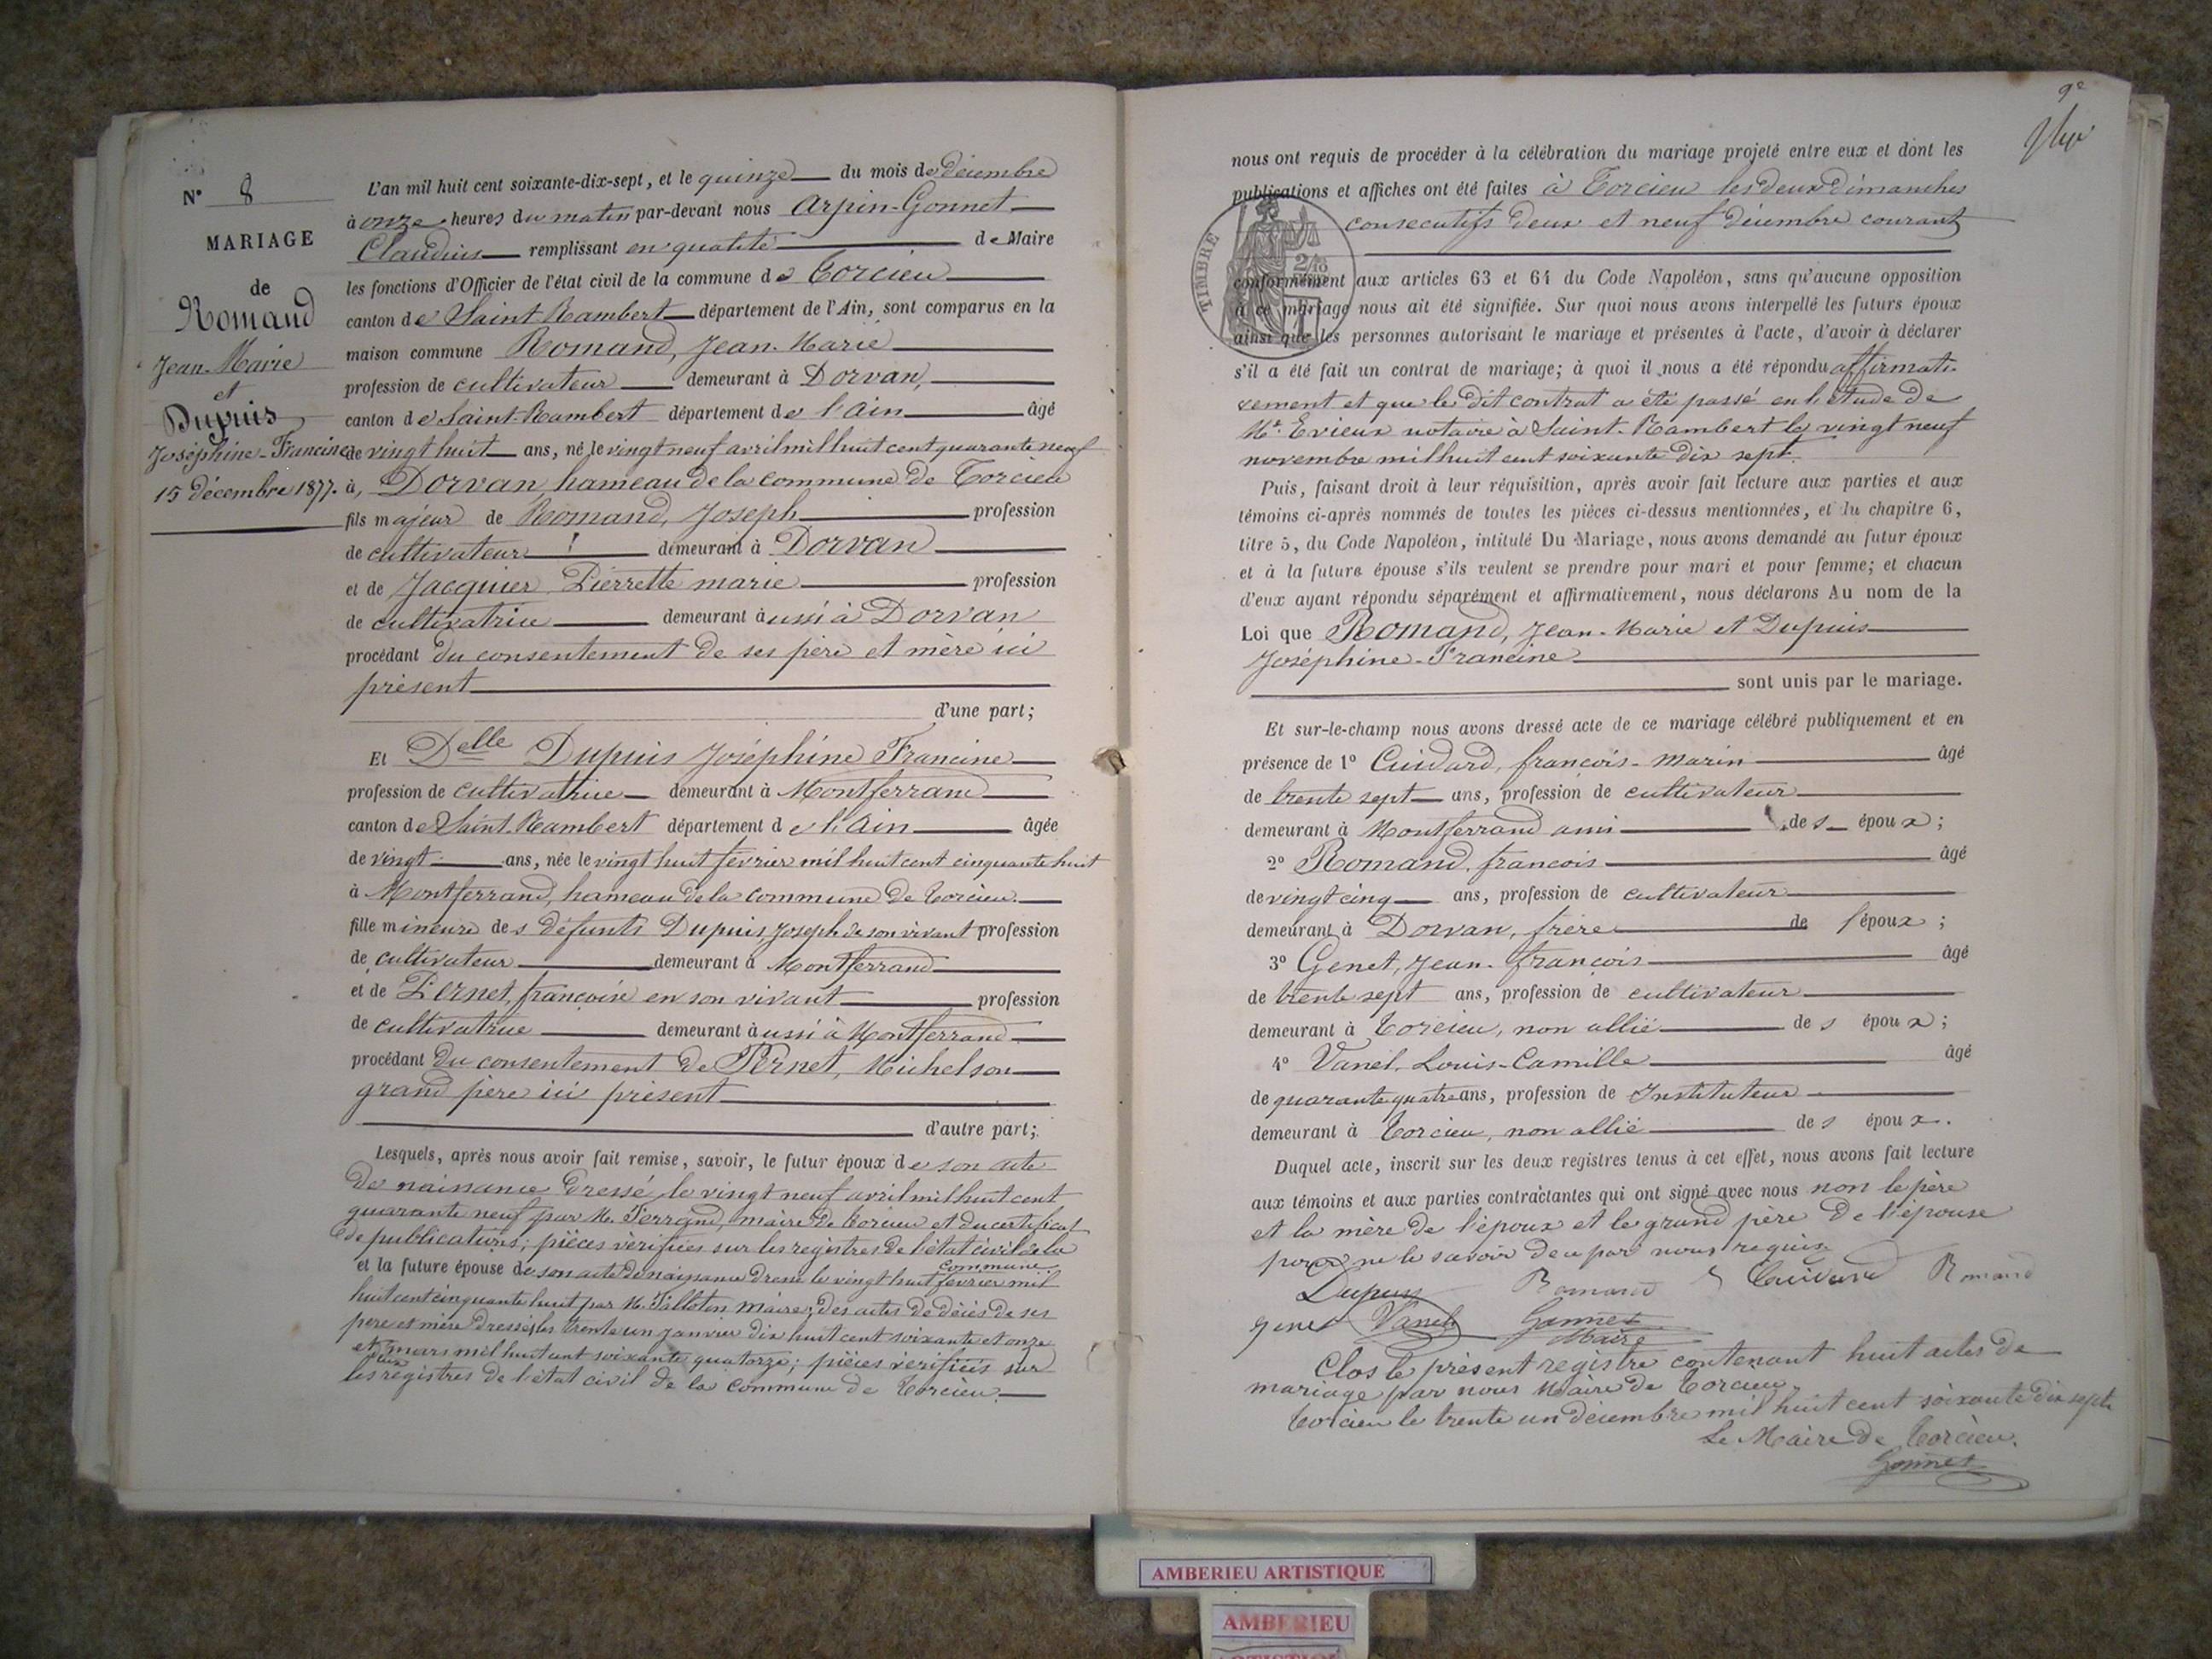 N° 8
MARIAGE
de
Romand
Jean-Marie
et
Dupuis
Joséphine-Francine
15 décembre 1877.
L'an mil huit cent soixante-dix-sept, et le quinze du mois de décembre
à onze heures du matin par-devant nous Arpin-Gonnet
Claudius remplissant en qualité de Maire
les fonctions d'Officier de l'état civil de la commune de Torcieu
canton de Saint Rambert département de l'Ain, sont comparus en la
maison commune Romand, Jean-Marie
profession de cultivateur demeurant à Dorvan,
canton de Saint-Rambert département de l'Ain âgé
de vingt huit ans, né le vingt neuf avril mil huit cent quarante neuf
à, Dorvan, hameau de la commune de Torcieu
fils majeur de Romand, Joseph profession
de cultivateur demeurant à Dorvan
et de Jacquier Pierrette marie profession
de cultivatrice demeurant aussi à Dorvan
procédant du consentement de ses père et mère ici
présent
d'une part;
Et Delle Dupuis Joséphine Francine
profession de cultivatrice demeurant à Montferrand
canton de Saint-Rambert département de l'Ain âgée
de vingt ans, née le vingt huit février mil huit cent cinquante huit
à Montferrand, hameau de la commune de Torcieu.
fille mineure des défunts Dupuis Joseph de son vivant profession
de cultivateur demeurant à Montferrand
et de Pernet, françoise en son vivant profession
de cultivatrice demeurant aussi à Montferrand
procédant du consentement de Pernet, Michel son
grand père ici présent
d'autre part;
Lesquels, après nous avoir fait remise, savoir, le futur époux de son acte
de naissance dressé le vingt neuf avril mil huit cent
quarante neuf par M. Ferrand, maire de Torcieu et du certificat
de publications; pièces vérifiées sur les registres de l'état civil de la
commune
et la future épouse de son acte de naissance dressé le vingt huit février mil
huit cent cinquante huit par M. Talloton maire; des actes de décès de ses
père et mère dressés les trente un janvier dix huit cent soixante et onze
et mars mil huit cent soixante quatorze; pièces vérifiées sur
les registres de l'état civil de la commune de Torcieu.
9e
nous ont requis de procéder à la célébration du mariage projeté entre eux et dont les
publications et affiches ont été faites à Torcieu les deux dimanches
consecutifs deux et neuf décembre courant
TIMBRE
conformément aux articles 63 et 64 du Code Napoléon, sans qu'aucune opposition
à ce mariage nous ait été signifiée. Sur quoi nous avons interpellé les futurs époux
ainsi que les personnes autorisant le mariage et présentes à l'acte, d'avoir à déclarer
s'il a été fait un contrat de mariage; à quoi il nous a été répondu affirmati-
vement et que le dit contrat a été passé en l'étude de
Me. Evieux notaire à Saint-Rambert le vingt neuf
novembre mil huit cent soixante dix sept.
Puis, faisant droit à leur réquisition, après avoir fait lecture aux parties et aux
témoins ci-après nommés de toutes les pièces ci-dessus mentionnées, et du chapitre 6,
titre 5, du Code Napoléon, intitulé Du Mariage, nous avons demandé au futur époux
et à la future épouse s'ils veulent se prendre pour mari et pour femme; et chacun
d'eux ayant répondu séparément et affirmativement, nous déclarons Au nom de la
Loi que Romand, Jean-Marie et Dupuis
Joséphine-Francine
sont unis par le mariage.
Et sur-le-champ nous avons dressé acte de ce mariage célébré publiquement et en
présence de 1° Cuidard, françois-marin âgé
de trente sept ans, profession de cultivateur
demeurant à Montferrand ami des époux;
2° Romand, francois âgé
de vingt cinq ans, profession de cultivateur
demeurant à Dorvan, frère de l'époux;
3° Genet, Jean-françois âgé
de trente sept ans, profession de cultivateur
demeurant à Torcieu, non allié des époux;
4° Vanel, Louis-Camille âgé
de quarante quatre ans, profession de Instituteur
demeurant à Torcieu, non allié des époux.
Duquel acte, inscrit sur les deux registres tenus à cet effet, nous avons fait lecture
aux témoins et aux parties contractantes qui ont signé avec nous non le père
et la mère de l'époux et le grand père de l'épouse
pour ne le savoir de ce par nous requis
Dupuis Romand Cuidard Romand
genet Vanel Gonnet
Maire
Clos le présent registre contenant huit actes de
mariage par nous Maire de Torcieu.
Torcieu le trente un décembre mil huit cent soixante dix sept
Le Maire de Torcieu.
Gonnet
AMBERIEU ARTISTIQUE
AMBERIEU
ARTISTIQUE